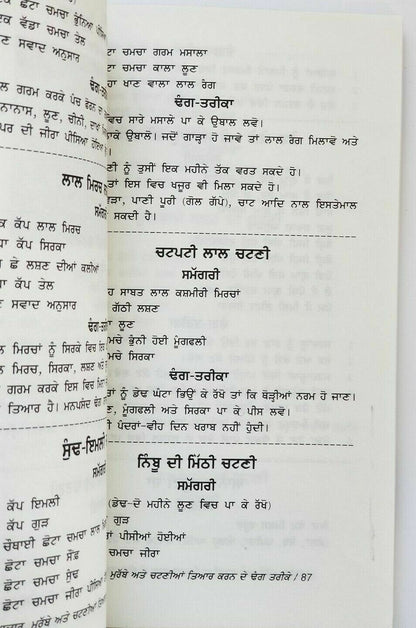 ਛੋਟਾ ਚਮਚਾ ਭੁੰਨਿਆ
ਇਕ ਵੱਡਾ ਚਮਚਾ ਤੇਲ
ਲੂਣ ਸਵਾਦ ਅਨੁਸਾਰ
ਢੰਗ-ਤਰੀਕਾ
ਗਰਮ ਕਰਕੇ ਪੰਚ ਫੋਰਨ ਦਾ
ਨਾਨਾਸ, ਲੂਣ, ਚੀਨੀ, ਦਾਖਾਂ
ਪਰ ਦੀ ਜੀਰਾ ਪੀਸਿਆ ਹੋਇਆ
ਲਾਲ ਮਿਰਚ
ਸਮੱਗਰੀ
ਕੱਪ ਲਾਲ ਮਿਰਚ
ਕੱਪ ਸਿਰਕਾ
ਛੇ ਲਸ਼ਣ ਦੀਆਂ ਕਲੀਆਂ
ਕੱਪ ਤੇਲ
ਸਵਾਦ ਅਨੁਸਾਰ
ਢੰਗ-ਤਰੀਕਾ
ਮਿਰਚਾਂ ਨੂੰ ਸਿਰਕੇ ਵਿਚ
ਮਿਰਚ, ਸਿਰਕਾ, ਲਸ਼ਣ ਅਤੇ
ਗਰਮ ਕਰਕੇ ਇਸ ਵਿਚ
ਤਿਆਰ ਹੈ। ਮਨਪਸੰਦ
ਸੁੰਢ-ਇਮਲੀ
ਸਮੱਗਰੀ
ਕੱਪ ਇਮਲੀ
ਕੱਪ ਗੁੜ
ਚੌਥਾਈ ਛੋਟਾ ਚਮਚਾ ਲਾਲ
ਛੋਟਾ ਚਮਚਾ ਸੌਂਫ਼
ਛੋਟਾ ਚਮਚਾ ਸੁੰਢ
ਛੋਟਾ ਚਮਚਾ ਜੀਰਾ
ਮੁਰੱਬੇ ਅਤੇ ਚਟਣੀਆਂ
ਟਾ ਚਮਚਾ ਗਰਮ ਮਸਾਲਾ
ਟਾ ਚਮਚਾ ਕਾਲਾ ਲੂਣ
ਹਾ ਖਾਣ ਵਾਲਾ ਲਾਲ ਰੰਗ
ਢੰਗ-ਤਰੀਕਾ
ਵਿਚ ਸਾਰੇ ਮਸਾਲੇ ਪਾ ਕੇ ਉਬਾਲ ਲਵੋ।
ਪਾਕੇ ਉਬਾਲੋ। ਜਦੋਂ ਗਾੜ੍ਹਾ ਹੋ ਜਾਵੇ ਤਾਂ ਲਾਲ ਰੰਗ ਮਿਲਾਵੋ ਅਤੇ
ਣੀ ਨੂੰ ਤੁਸੀਂ ਇਕ ਮਹੀਨੇ ਤੱਕ ਵਰਤ ਸਕਦੇ ਹੋ।
ਤਾਂ ਇਸ ਵਿਚ ਖਜੂਰ ਵੀ ਮਿਲਾ ਸਕਦੇ ਹੋ।
ੜਾ, ਪਾਣੀ ਪੂਰੀ (ਗੋਲ ਗੱਪੇ), ਚਾਟ ਆਦਿ ਨਾਲ ਇਸਤੇਮਾਲ
ਸਕਦੀ ਹੈ।
ਚਟਪਟੀ ਲਾਲ ਚਟਣੀ
ਸਮੱਗਰੀ
ਹ ਸਾਬਤ ਲਾਲ ਕਸ਼ਮੀਰੀ ਮਿਰਚਾਂ
ਗੱਠੀ ਲਸ਼ਣ
ਲੂਣ
ਮਚੇ ਭੁੰਨੀ ਹੋਈ ਮੂੰਗਫਲੀ
ਮਚੇ ਸਿਰਕਾ
ਢੰਗ-ਤਰੀਕਾ
ਤਾਂ ਨੂੰ ਡੇਢ ਘੰਟਾ ਭਿਉਂ ਕੇ ਰੱਖੋ ਤਾਂ ਕਿ ਥੋੜ੍ਹੀਆਂ ਨਰਮ ਹੋ ਜਾਣ।
ਣ, ਮੂੰਗਫਲੀ ਅਤੇ ਸਿਰਕਾ ਪਾ ਕੇ ਪੀਸ ਲਵੋ।
ਪੰਦਰਾਂ-ਵੀਹ ਦਿਨ ਖਰਾਬ ਨਹੀਂ ਹੁੰਦੀ।
ਨਿੰਬੂ ਦੀ ਮਿੱਠੀ ਚਟਣੀ
ਸਮੱਗਰੀ
(ਡੇਢ-ਦੋ ਮਹੀਨੇ ਲੂਣ ਵਿਚ ਪਾ ਕੇ ਰੱਖੋ)
ਗੁੜ
ਾਂ ਪੀਸੀਆਂ ਹੋਈਆਂ
ਚਮਚਾ ਜੀਰਾ
ਮੁਰੱਬੇ ਅਤੇ ਚਟਣੀਆਂ ਤਿਆਰ ਕਰਨ ਦੇ ਢੰਗ ਤਰੀਕੇ / 87